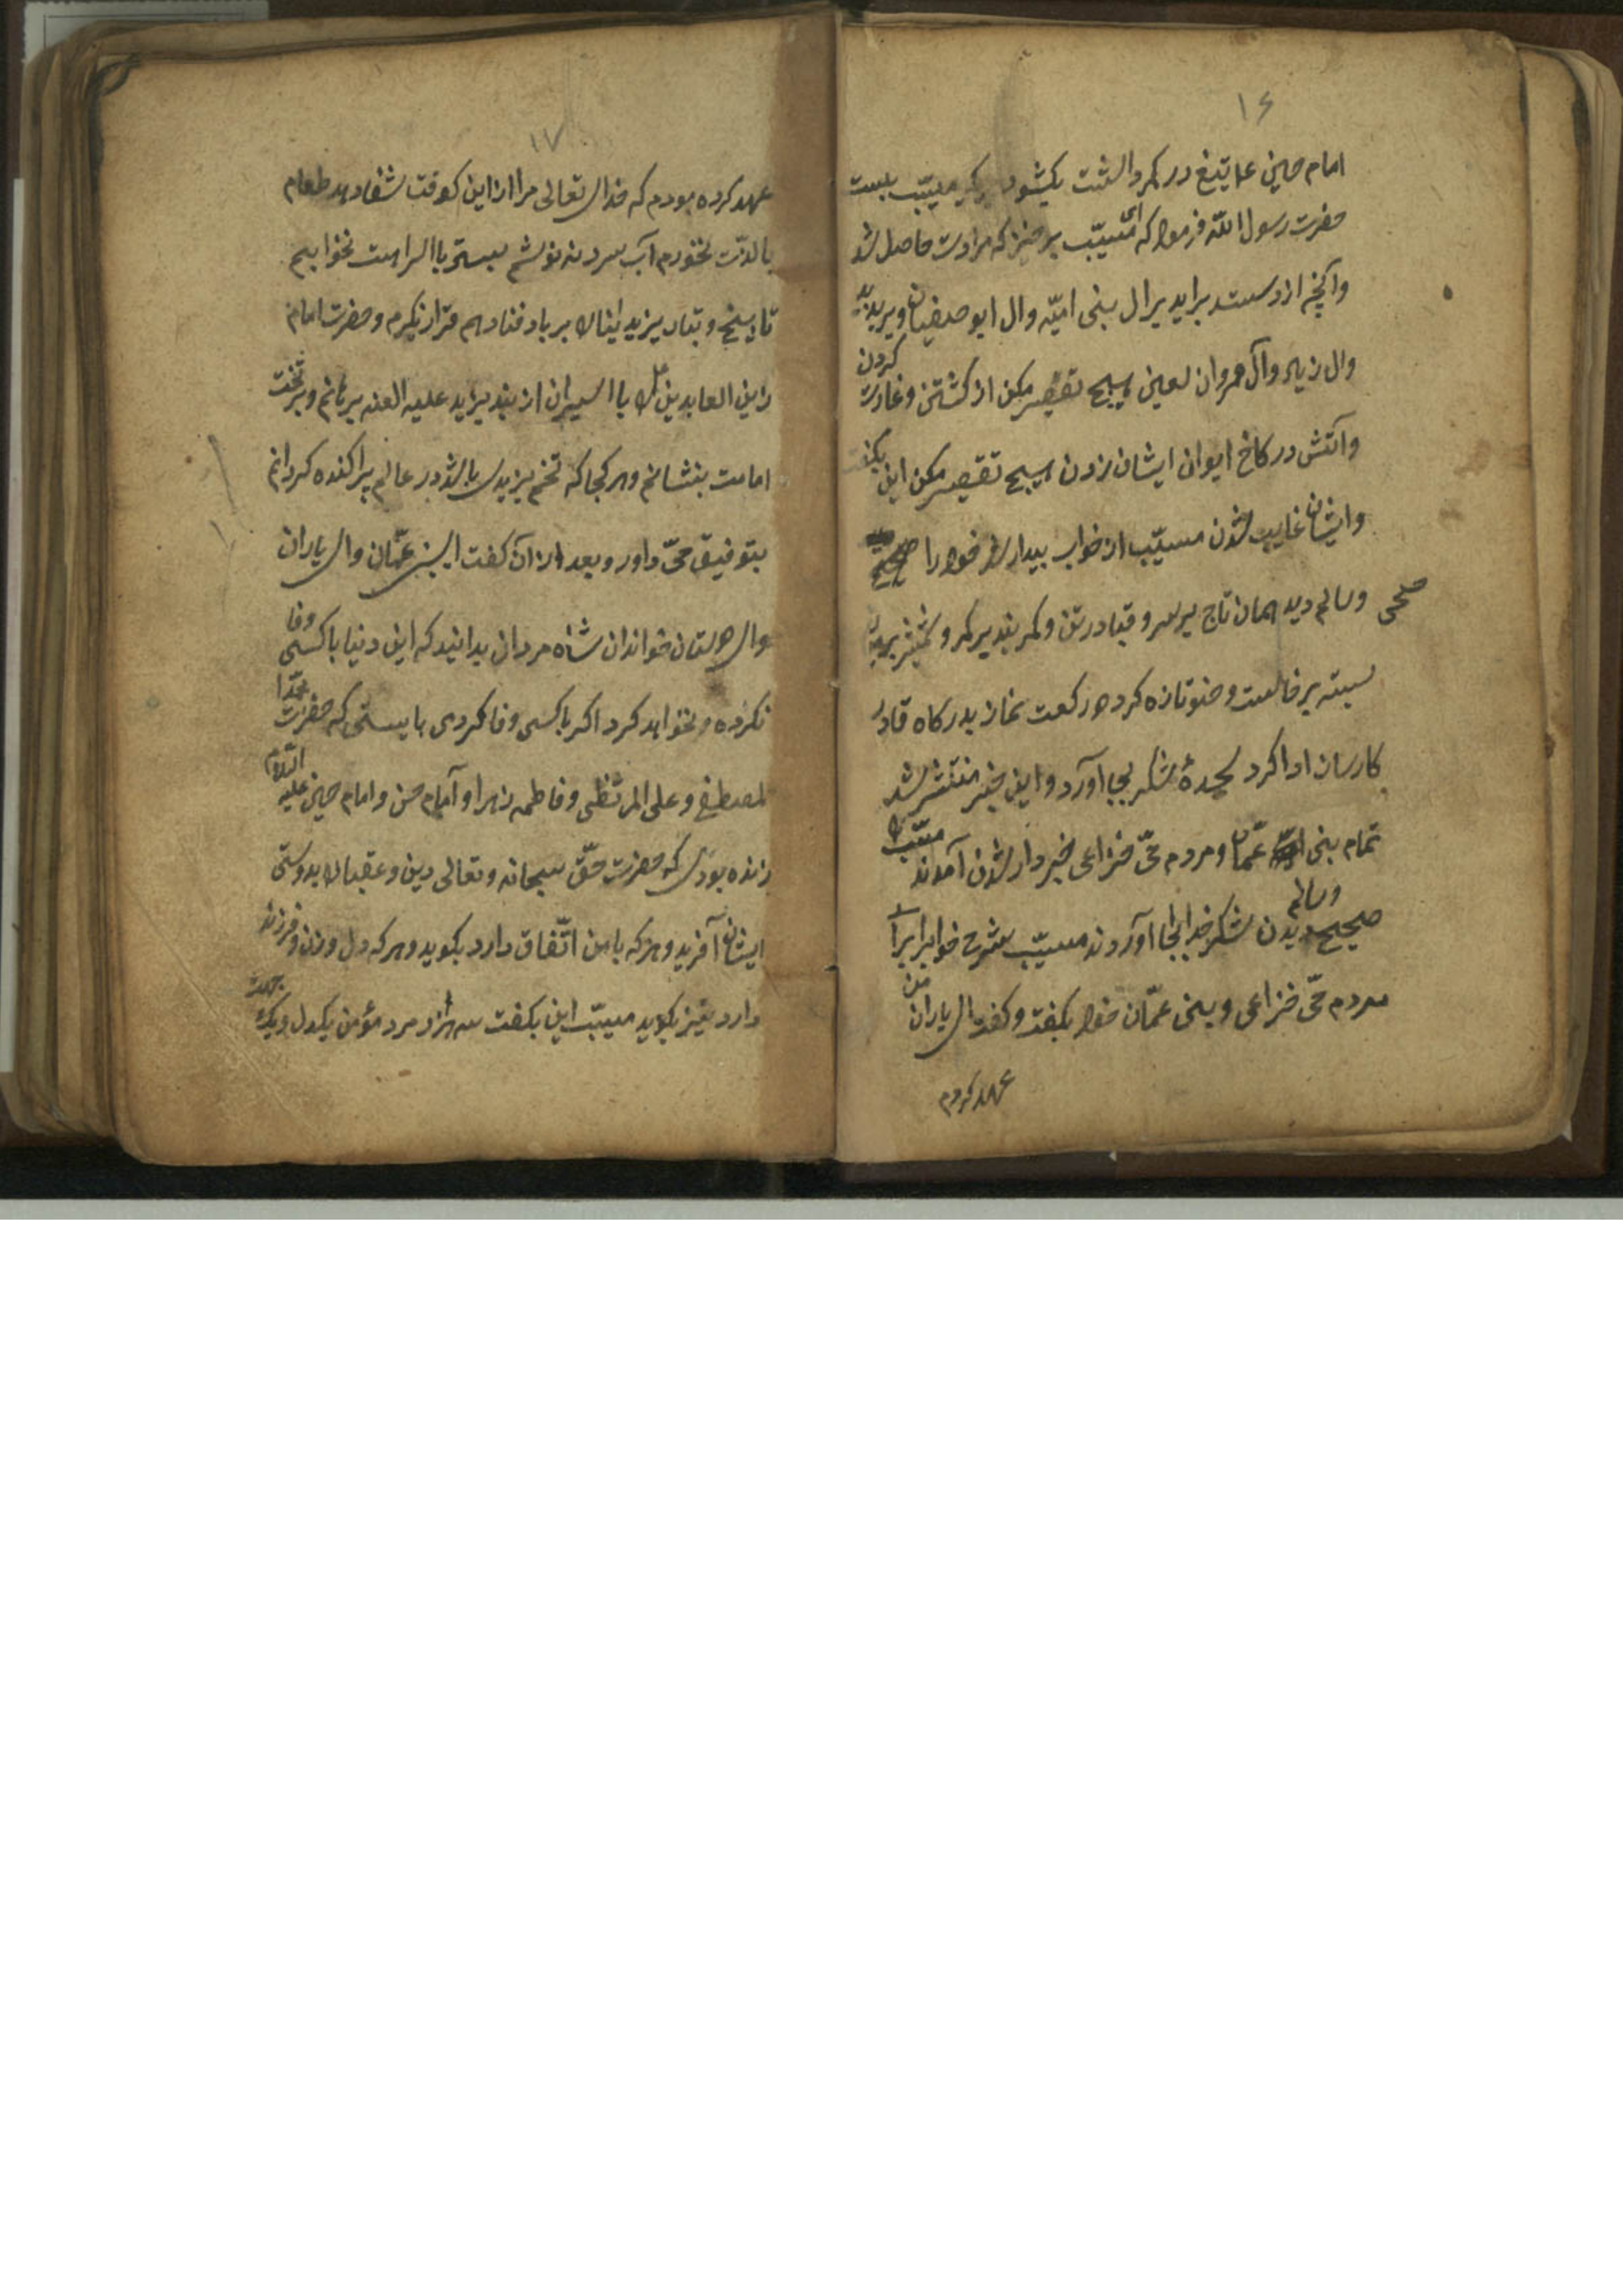 ۱۶
امام حسین علا تیغ در کمر داشت بکشود بکمر مسیّب ببست
حضرت رسول الله فرمود که ای مسیّب برخیز که مرادت حاصل شد
وآنچه از دستت براید برال بنی امیّه وال ابو صفیان ویزید
وال زیاد وآل مروان لعین هیچ تقصیر مکن از کشتن و غارت کردن
وآتش در کاخ ایوان ایشان زدن هیچ تقصیر مکن این بکفت
وایشان غایب شدن مسیّب از خواب بیدار شد خود را صحیح
وسالم دید همان تاج برسر و قبا در تن و کمر بند بر کمر و شمشیر بر میان
بسته برخاست وضو تازه کرد دو رکعت نماز بدرکاه قادر
کارساز ادا کرد سجدهٔ شکر بجا آورد و این خبر منتشر شد
تمام بنی عمّان و مردم حّی خزاعی خبردار شدن آمدند مسیّب را
صحیح وسالم دیدن شکر خدا بجا آوردند مسیّب شرح خواب را برا
مردم حّی خزاعی و بنی عمّان خود بکفت وکفت ای یاران من
عهد کردم
۱۷
عهد کرده بودم که خدای تعالی مرا از این کوفت شفا دهد طعام
با لذّت نخورم آب سرد ننوشم ببستر با استراحت نخوابیم
تا بیخ و تبار یزیدیان را بر باد فنا دهم قرار نکیرم و حضرت امام
زاین العابدین را با اسیران از بند یزید علیه العنه برهانم و بر تخت
امامت بنشانم وهر کجا که تخم یزیدی باشد در عالم پراکنده کردانم
بتوفیق حّی داور و بعد از آن کفت ای بنی عمّان و ای یاران
وای دوستان خواندان شاه مردان بدانید که این دنیا با کسی وفا
نکرده و نخواهد کرد اکر با کسی وفا کردی بایستی که حضرت محمّد
المصطفی و علی المرتظی و فاطمه زهرا و آمام حسن و امام حسین علیه السّلام
زنده بودی که حضرت حّق سبحانه و تعالی دین و عقبا را بدوستی
ایشان آفرید و هر که با من اتّفاق دارد بکوید و هر که دل و زن و فرزند
دارد نیز بکوید مسیّب این بکفت سه هزار مرد مؤمن یکدل و یک جهت